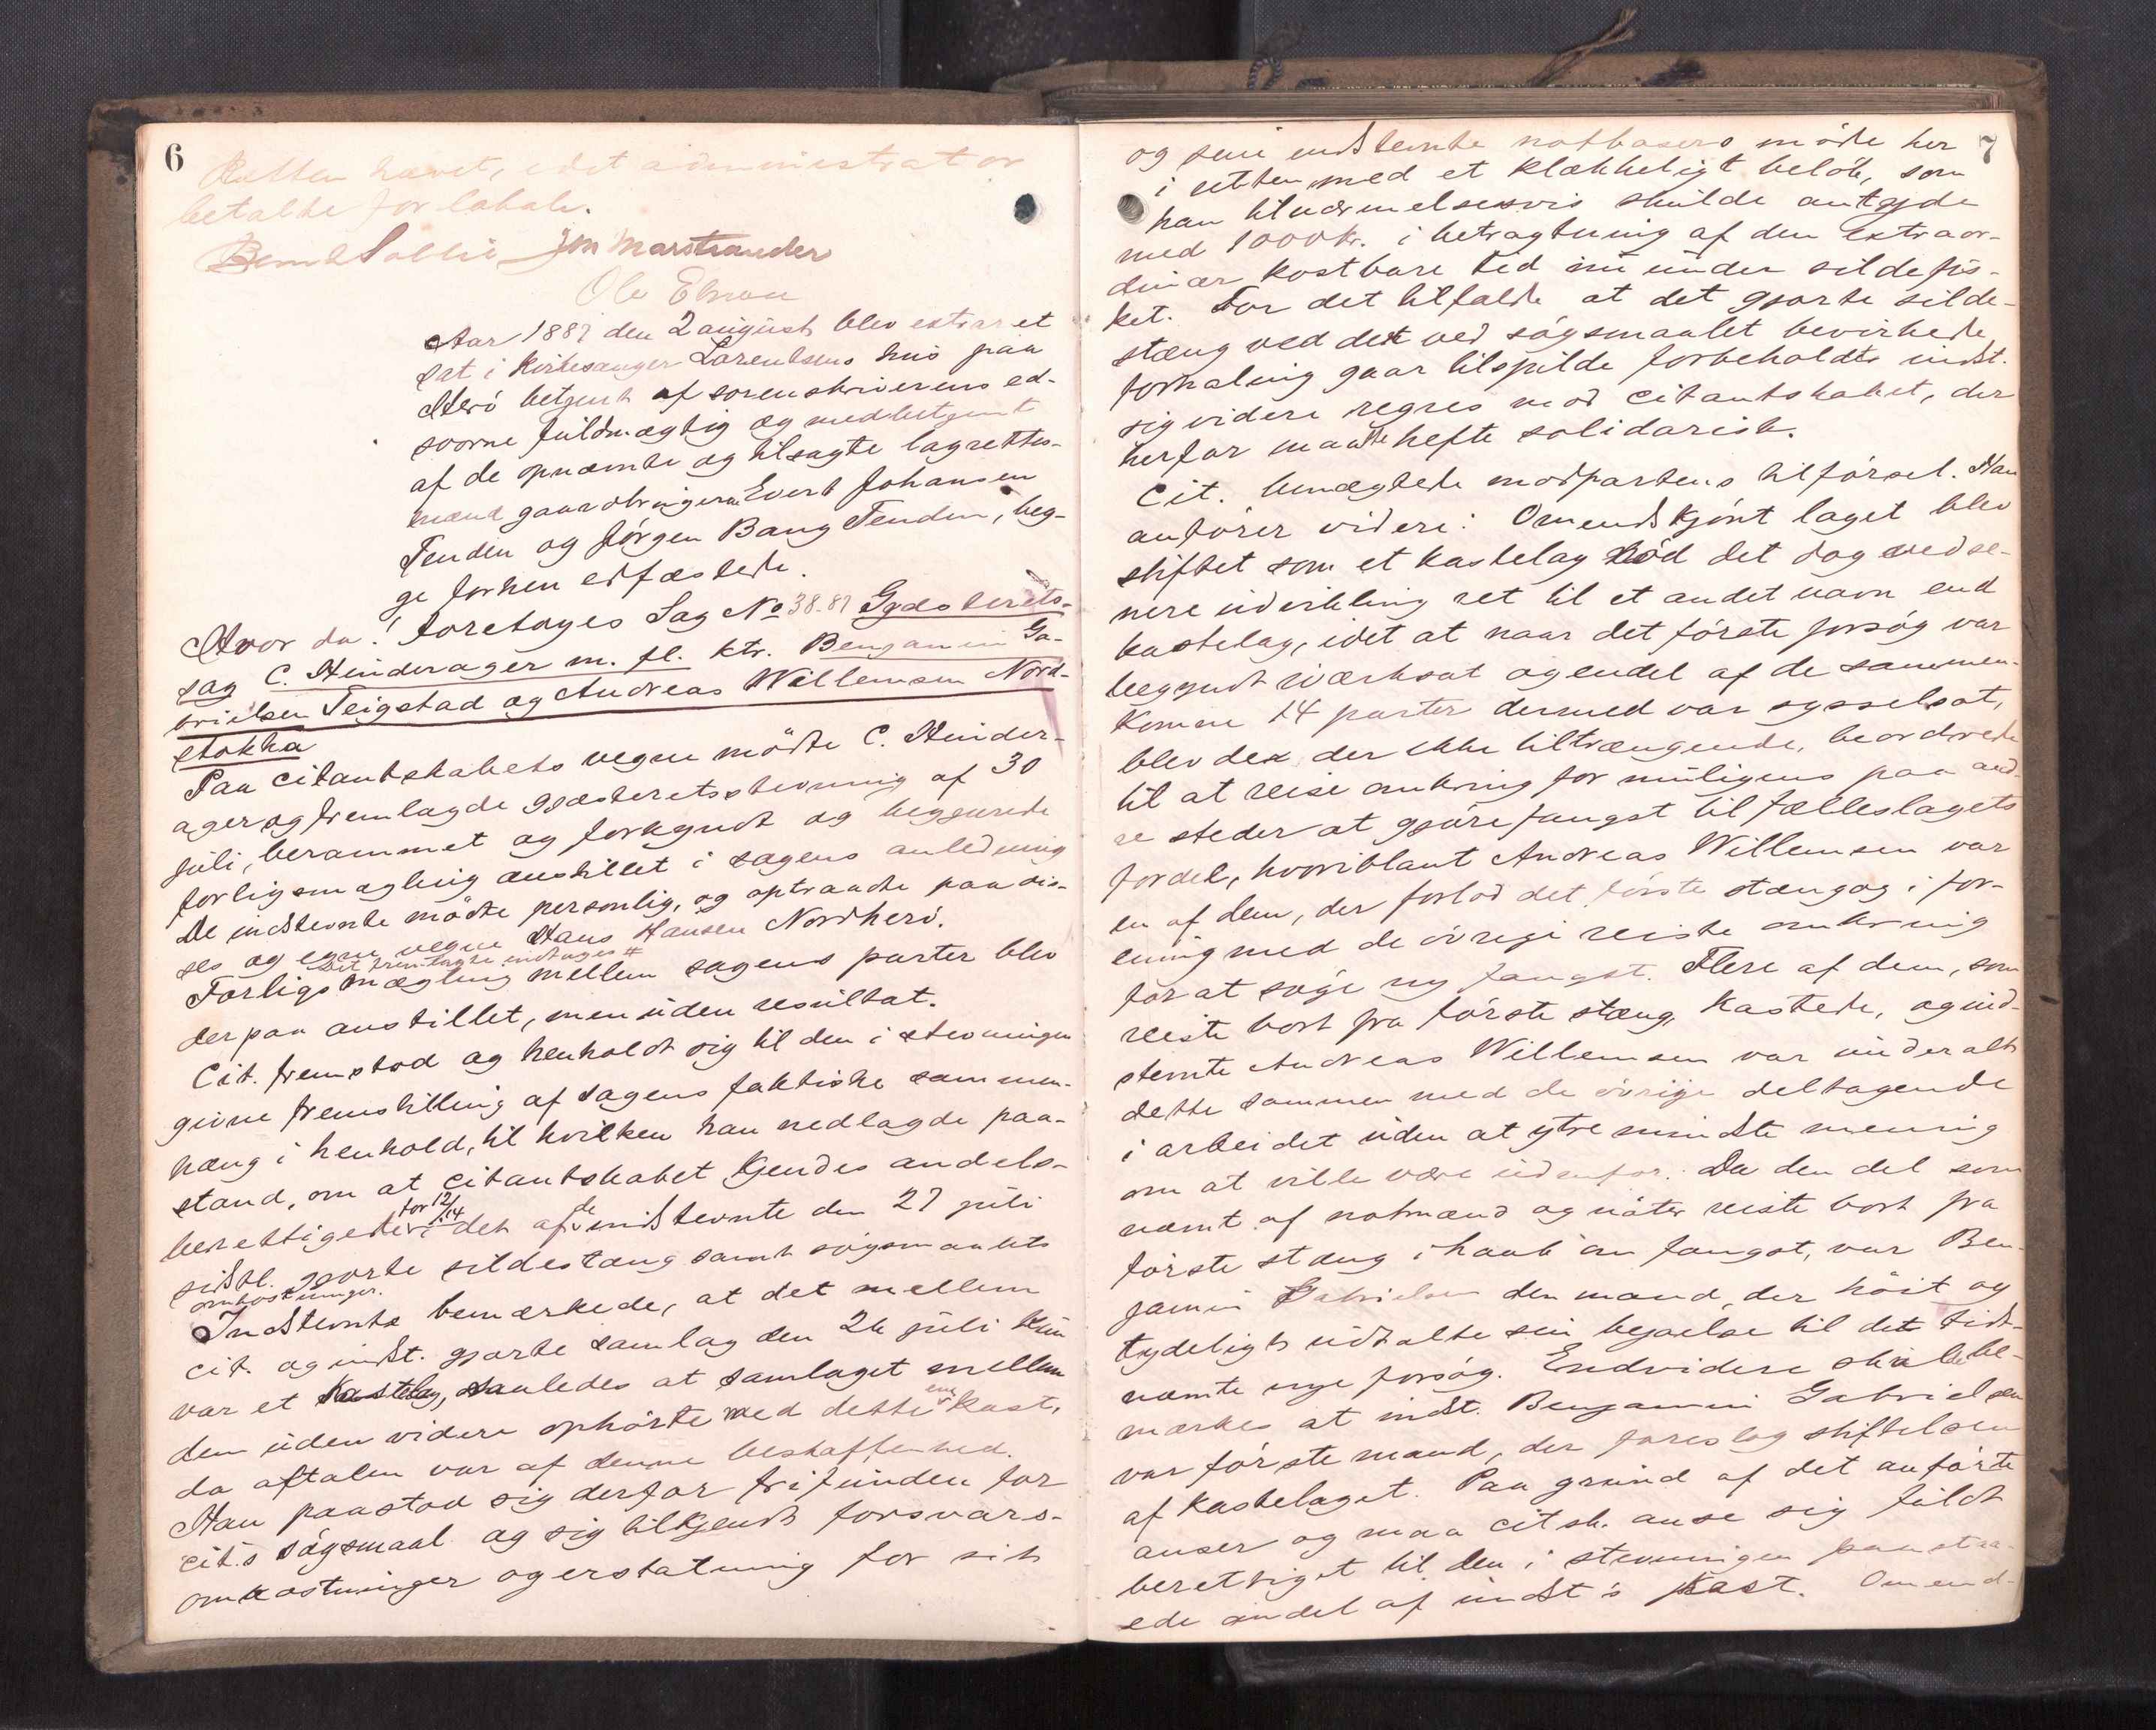 6
Retten hævet, idet administrator
betalte for lokale.
JM Marstrander
Ole
Aar 1887 den 2 august blev extraret
sat i kirkesanger Larentsens hus paa
Herö betjent af sorenskriverens ed-
svorne fuldmægtig og medbetjent
af de opnævnte og tilsagte lagrettes-
mænd gaardbrugerne Evert Johansen
Tenden og Jörgen Bang Tenden, beg-
ge forhen edfæstede.
Hvor da! foretoges Sag No 38-87 Gjæsterets-
sag C. Heinderager m. fl. ktr. Benjamin Ga-
brielsen Teigstad og Andreas Willemsen Nord-
stokka
Paa citantskabets vegne mödte C. Heinder-
ager og fremlagde gjæsteretsstevning af 30
juli, berammet og forkyndt og begjærede
forligsmægling anstillet i sagens anledning
De indstevnte mödte personlig, og optraadte paa dis-
ses og egne vegne Hans Hansen Nordherö.
Det fremlagte indtages #
Forligsmægling mellem sagens parter blev
derpaa anstillet, men uden resultat.
Cit. fremstod og henholdt sig til den i stevningen
givne fremstilling af sagens faktiske sammen-
hæng i henhold, til hvilken han nedlagde paa-
stand, om at citantskabet kjendes andels-
berettigede for 12/14 i det af de indstevnte den 27 juli
sidstl. gjorte sildestæng samt sögsmaalets
omkostninger.
Indstevnte bemærkede, at det mellem
cit. og indst. gjorte samlag den 26 juli kun
var et kastelag, saaledes at samlaget mellem
dem uden videre ophörte med dette ene kast,
da aftalen var af denne beskaffenhed.
Han paastod sig derfor frifunden for
cit.s sögsmaal og sig tilkjendt forsvars-
omkostninger og erstatning for sit
7
og sine indstevnte notbasers möde her
i retten, med et klækkeligt belöb, som
han tilnærmelsesvis skulde antyde
med 1000 kr. i betragtning af den extraor-
dinær kostbare tid nu under sildefis-
ket. For det tilfælde at det gjorte silde-
stæng ved det ved sögsmaalet bevirkede
forhaling gaar tilspilde forbeholdtes indst.
sig videre regres mod citantskabet, der
herfor maatte hefte solidarisk.
Cit. benægtede modpartens tilförsel. Han
anförer videre: Omendskjönt laget blev
stiftet som et kastelag död det dog ved se-
nere udvikling ret til et andet navn end
kastelag, idet at naar det förste forsög var
begyndt iværksat og endel af de sammen-
komne 14 parter dermed var sysselsat,
blev de, der ikke tiltrængende, beordrede
til at reise omkring for muligens paa and-
re steder at gjöre fangst til fælleslagets
fordel, hvoriblant Andreas Willemsen var
en af dem, der forlod det förste stæng og i for-
ening med de övrige reiste omkring
for at söge ny fangst. Flere af dem, som
reiste bort fra förste stæng, kastede, og ind-
stevnte Andreas Willemsen var under alt
dette sammen med de övrige deltagende
i arbeidet uden at ytre mindste mening
om at ville være udenfor. Da den del som
nævnt af notmænd og nöter reiste bort fra
förste stæng i haab om fangst, var Ben-
jamin Gabrielsen den mand, der höit og
tydeligt udtalte sin bejaelse til det sidst-
nævnte nye forsög. Endvidere skulde be-
mærkes at indst. Benjamin Gabrielsen
var förste mand, der foreslog stiftelsen
af kastelaget. Paa grund af det anförte
anser og maa citsk. anse sig fuldt
berettiget til den i stevningen paastaa-
ede andel af indst's kast. Omend-